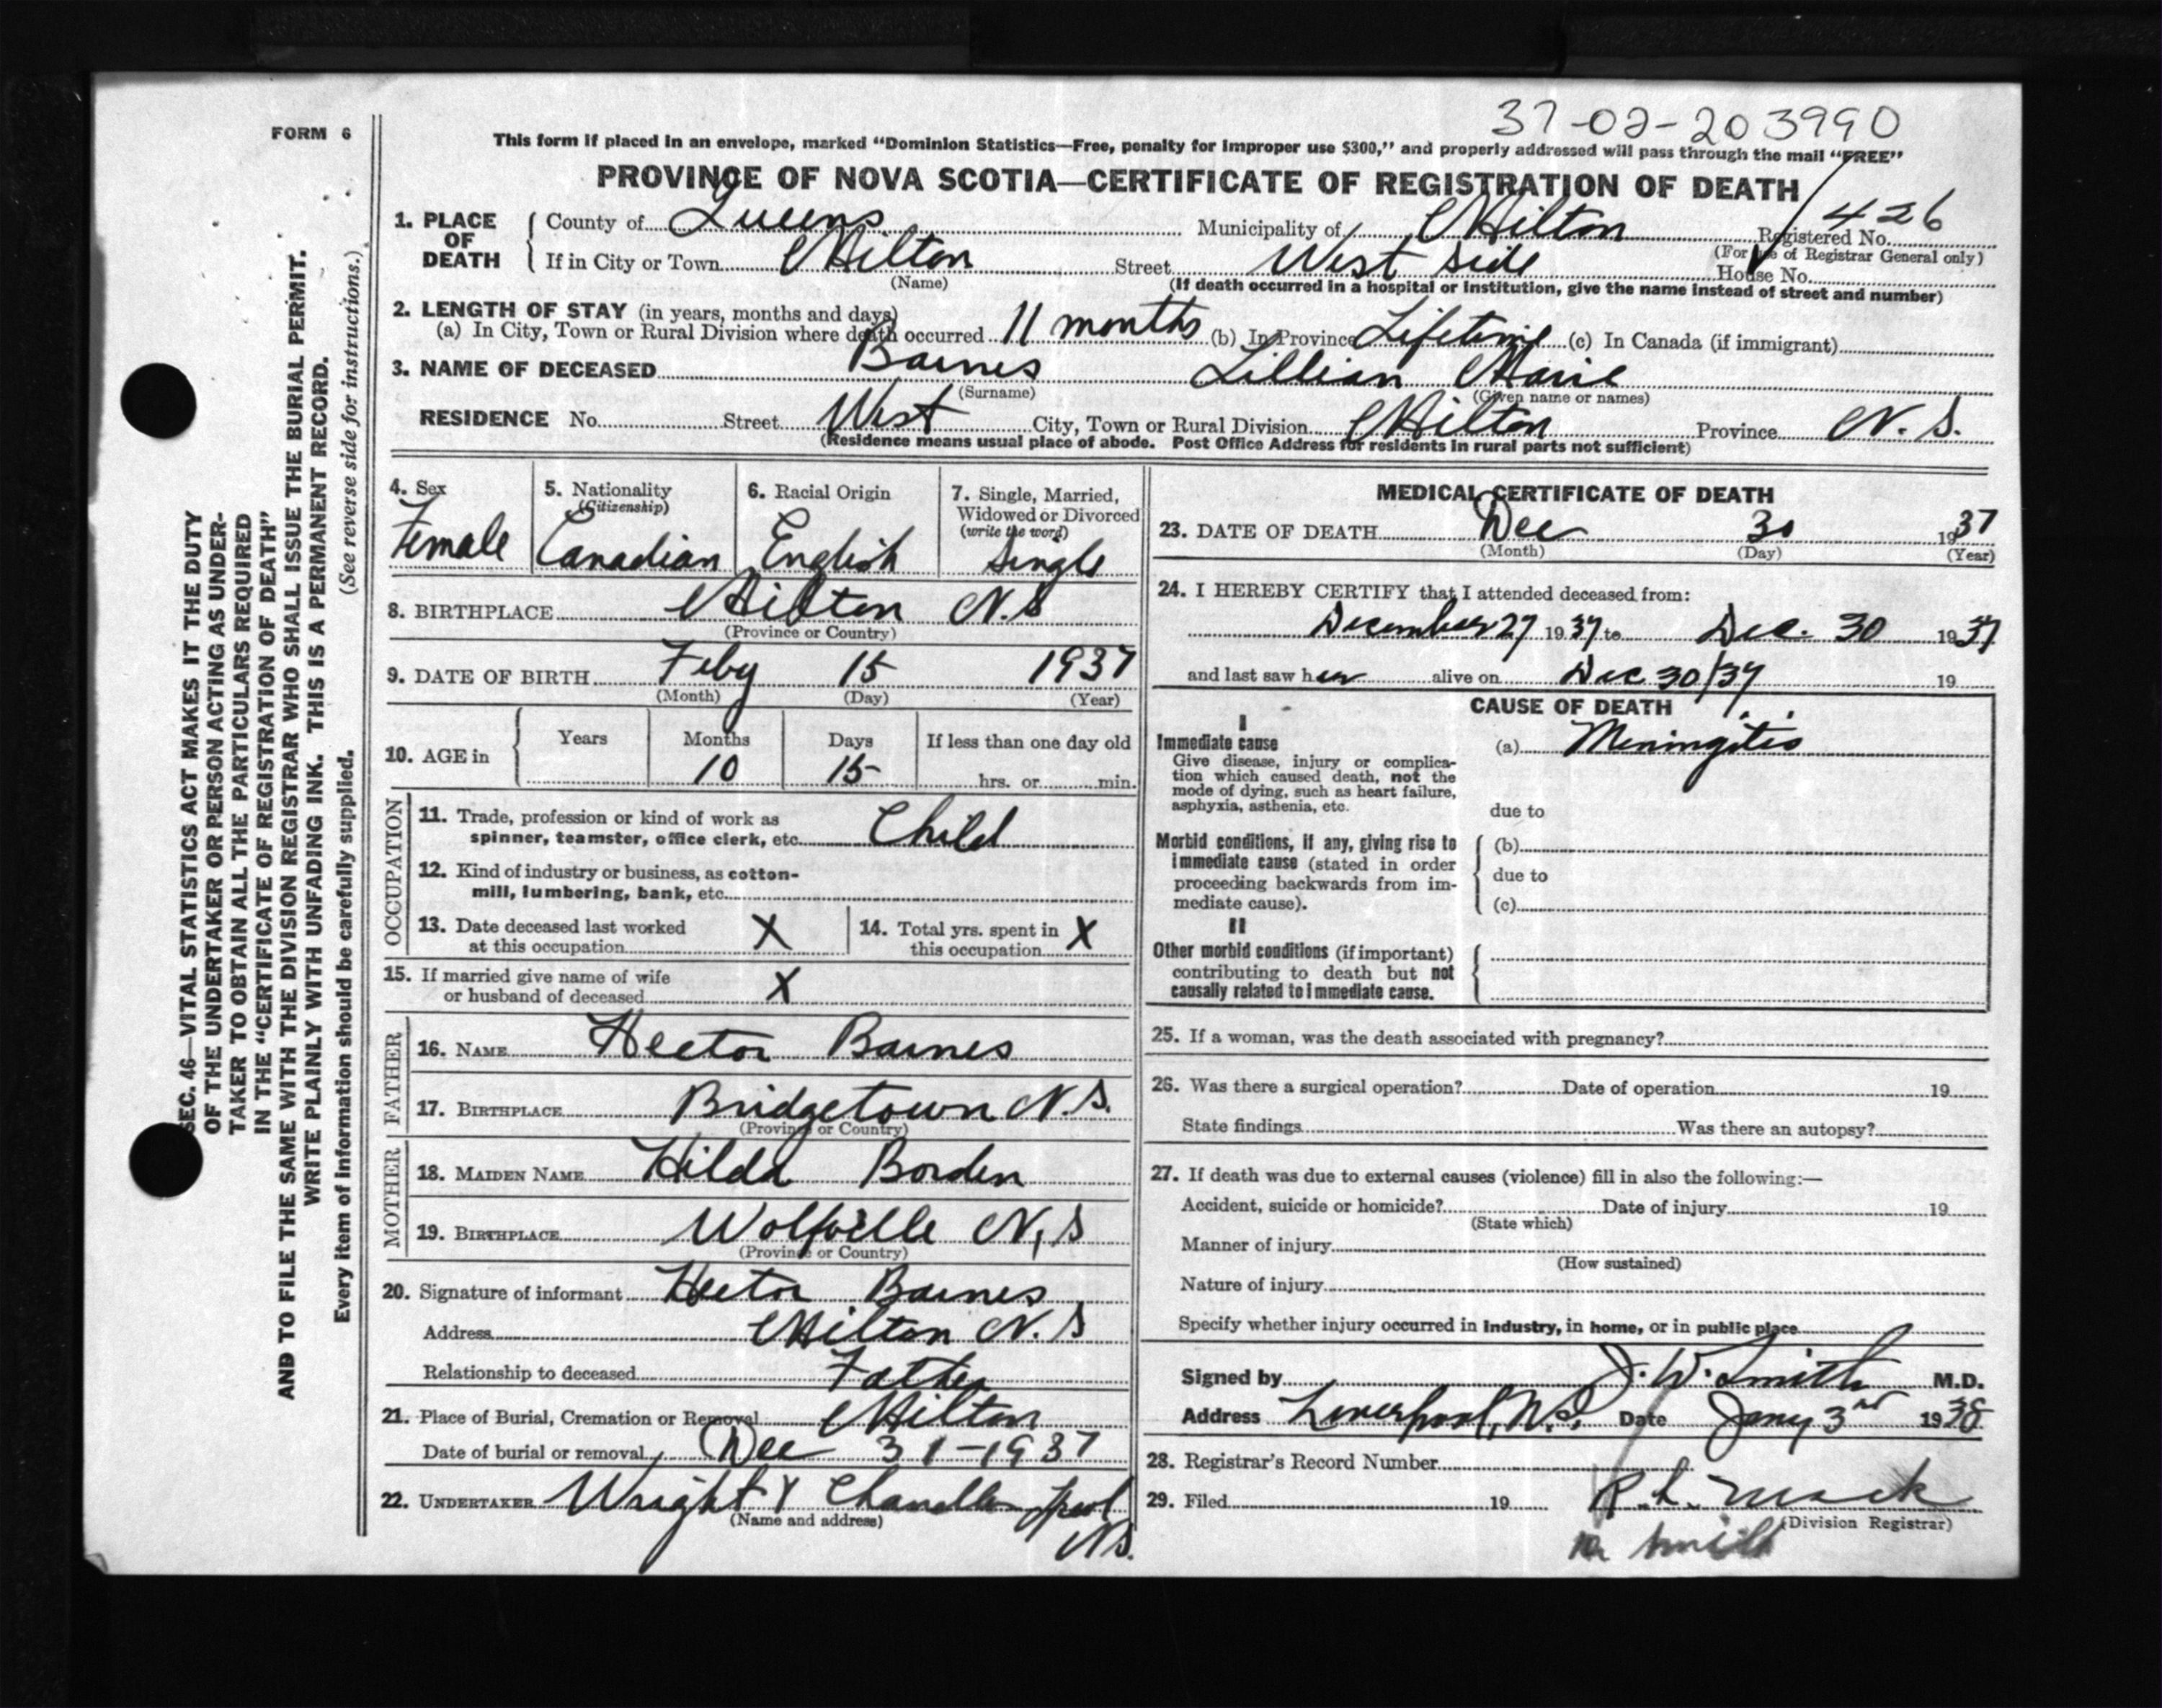 37-02-203990
FORM 6
This form if placed in an envelope, marked "Dominion Statistics—Free, penalty for improper use $300," and properly addressed will pass through the mail "FREE"
PROVINCE OF NOVA SCOTIA—CERTIFICATE OF REGISTRATION OF DEATH
1. PLACE OF DEATH { County of Queens Municipality of Milton Registered No. 426
(For use of Registrar General only)
If in City or Town Milton Street West Side House No.
(Name) (If death occurred in a hospital or institution, give the name instead of street and number)
2. LENGTH OF STAY (in years, months and days)
(a) In City, Town or Rural Division where death occurred 11 months (b) In Province Lifetime (c) In Canada (if immigrant)
3. NAME OF DECEASED Barnes Lillian Marie
(Surname) (Given name or names)
RESIDENCE No. Street West City, Town or Rural Division Milton Province N.S.
(Residence means usual place of abode. Post Office Address for residents in rural parts not sufficient)
4. Sex Female
5. Nationality (Citizenship) Canadian
6. Racial Origin English
7. Single, Married, Widowed or Divorced (write the word) Single
8. BIRTHPLACE Milton N.S
(Province or Country)
9. DATE OF BIRTH Feby 15 1937
(Month) (Day) (Year)
10. AGE in { Years Months Days If less than one day old
10 15 hrs. or min.
OCCUPATION
11. Trade, profession or kind of work as
spinner, teamster, office clerk, etc. Child
12. Kind of industry or business, as cotton-
mill, lumbering, bank, etc.
13. Date deceased last worked
at this occupation X
14. Total yrs. spent in
this occupation X
15. If married give name of wife
or husband of deceased X
FATHER
16. NAME Hector Barnes
17. BIRTHPLACE Bridgetown N.S.
(Province or Country)
MOTHER
18. MAIDEN NAME Hilda Borden
19. BIRTHPLACE Wolfville N,S
(Province or Country)
20. Signature of informant Hector Barnes
Address Milton N.S
Relationship to deceased Father
21. Place of Burial, Cremation or Removal Milton
Date of burial or removal Dec 31-1937
22. UNDERTAKER Wright & Chandler Lpool
(Name and address) NS.
MEDICAL CERTIFICATE OF DEATH
23. DATE OF DEATH Dec 30 1937
(Month) (Day) (Year)
24. I HEREBY CERTIFY that I attended deceased from:
December 27 1937 to Dec. 30 1937
and last saw her alive on Dec 30/37 19
CAUSE OF DEATH
I
Immediate cause
Give disease, injury or complica-
tion which caused death, not the
mode of dying, such as heart failure,
asphyxia, asthenia, etc.
(a) Meningitis
due to
Morbid conditions, if any, giving rise to
immediate cause (stated in order
proceeding backwards from im-
mediate cause).
(b)
due to
(c)
II
Other morbid conditions (if important)
contributing to death but not
causally related to immediate cause.
25. If a woman, was the death associated with pregnancy?
26. Was there a surgical operation? Date of operation 19
State findings Was there an autopsy?
27. If death was due to external causes (violence) fill in also the following:—
Accident, suicide or homicide? Date of injury 19
(State which)
Manner of injury
(How sustained)
Nature of injury
Specify whether injury occurred in industry, in home, or in public place
Signed by J. W. Smith M.D.
Address Liverpool, N.S. Date Jany 3rd 1938
28. Registrar's Record Number
29. Filed 19 R. L. Mack
(Division Registrar)
Smith
SEC. 46—VITAL STATISTICS ACT MAKES IT THE DUTY
OF THE UNDERTAKER OR PERSON ACTING AS UNDER-
TAKER TO OBTAIN ALL THE PARTICULARS REQUIRED
IN THE "CERTIFICATE OF REGISTRATION OF DEATH"
AND TO FILE THE SAME WITH THE DIVISION REGISTRAR WHO SHALL ISSUE THE BURIAL PERMIT.
WRITE PLAINLY WITH UNFADING INK. THIS IS A PERMANENT RECORD.
Every item of information should be carefully supplied. (See reverse side for instructions.)